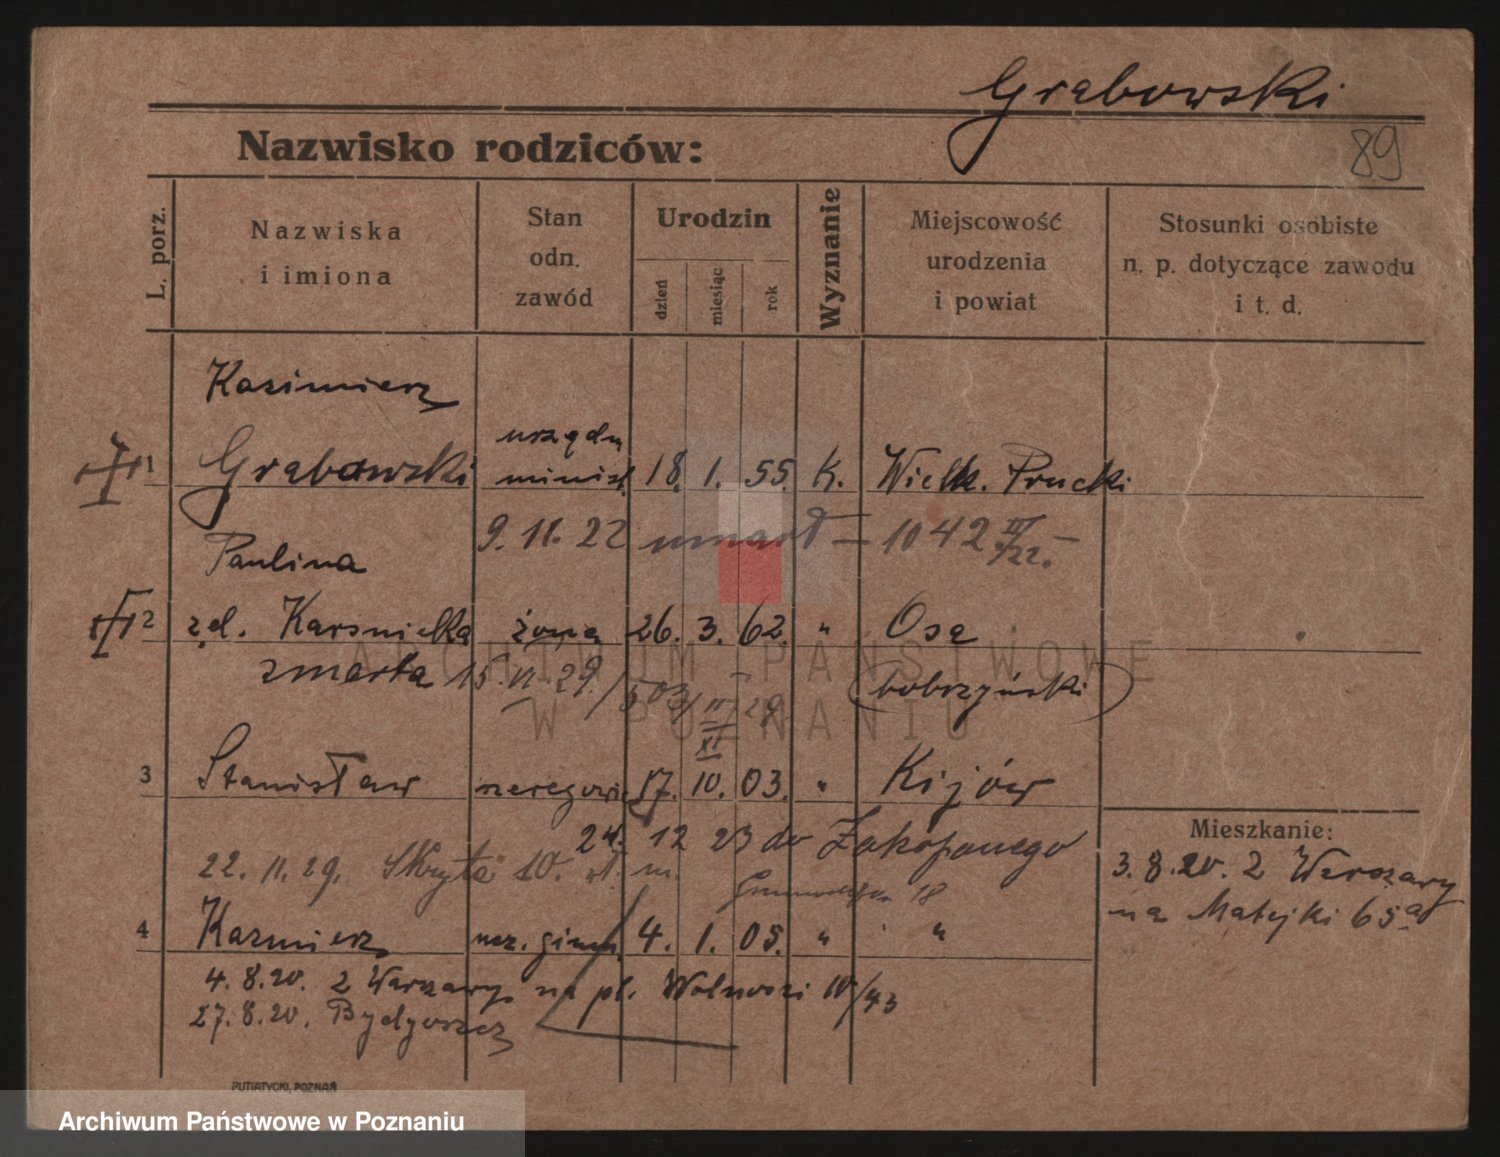 Grabowski
89
Nazwisko rodziców:
L. porz.
Nazwiska
i imiona
Stan
odn.
zawód
Urodzin
dzień
miesiąc
rok
Wyznanie
Miejscowość
urodzenia
i powiat
Stosunki osobiste
n. p. dotyczące zawodu
i t. d.
Kazimierz
urzędn
1 Grabowski minist. 18. 1. 55. K. Wielk. Prucki
9. 11. 22 umarł — 1042 IV/22. —
Paulina
2 zd. Karsnicka żona 26. 3. 62. " Osa
zmarła 15. 11. 29. / 503/IV 29
(bobrzyński)
XI
3 Stanisław szeregowiec 17. 10. 03. " Kijów
24. 12 23 do Zakopanego
22. 11. 29. Skryta 10. m.
18
4 Kazmierz ucz. gimn. 4. 1. 05. " "
4. 8. 20. z Warszawy na pl. Wolności 10/43
27. 8. 20. Bydgoszcz
Mieszkanie:
3. 8. 20. z Warszawy
na Matejki 65a
ARCHIWUM PAŃSTWOWE
W POZNANIU
PUTIATYCKI, POZNAŃ
Archiwum Państwowe w Poznaniu